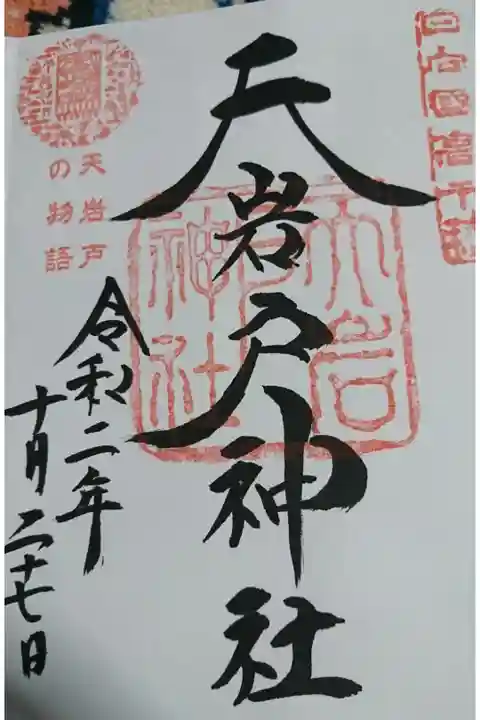 日向国高千穂
天岩戸神社
天岩戸神社
天岩戸
の物語
令和二年
十月二十七日